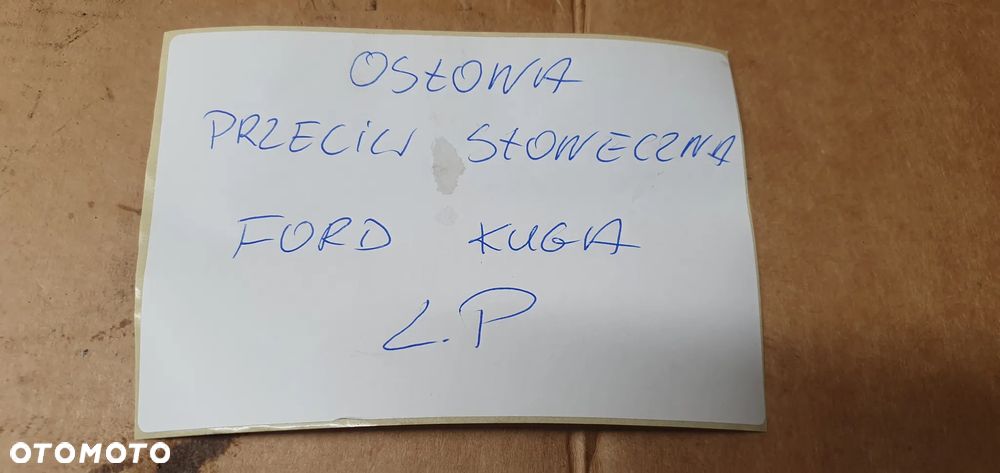 OSŁONA
PRZECIW SŁONECZNA
FORD KUGA
L.P
OTOMOTO